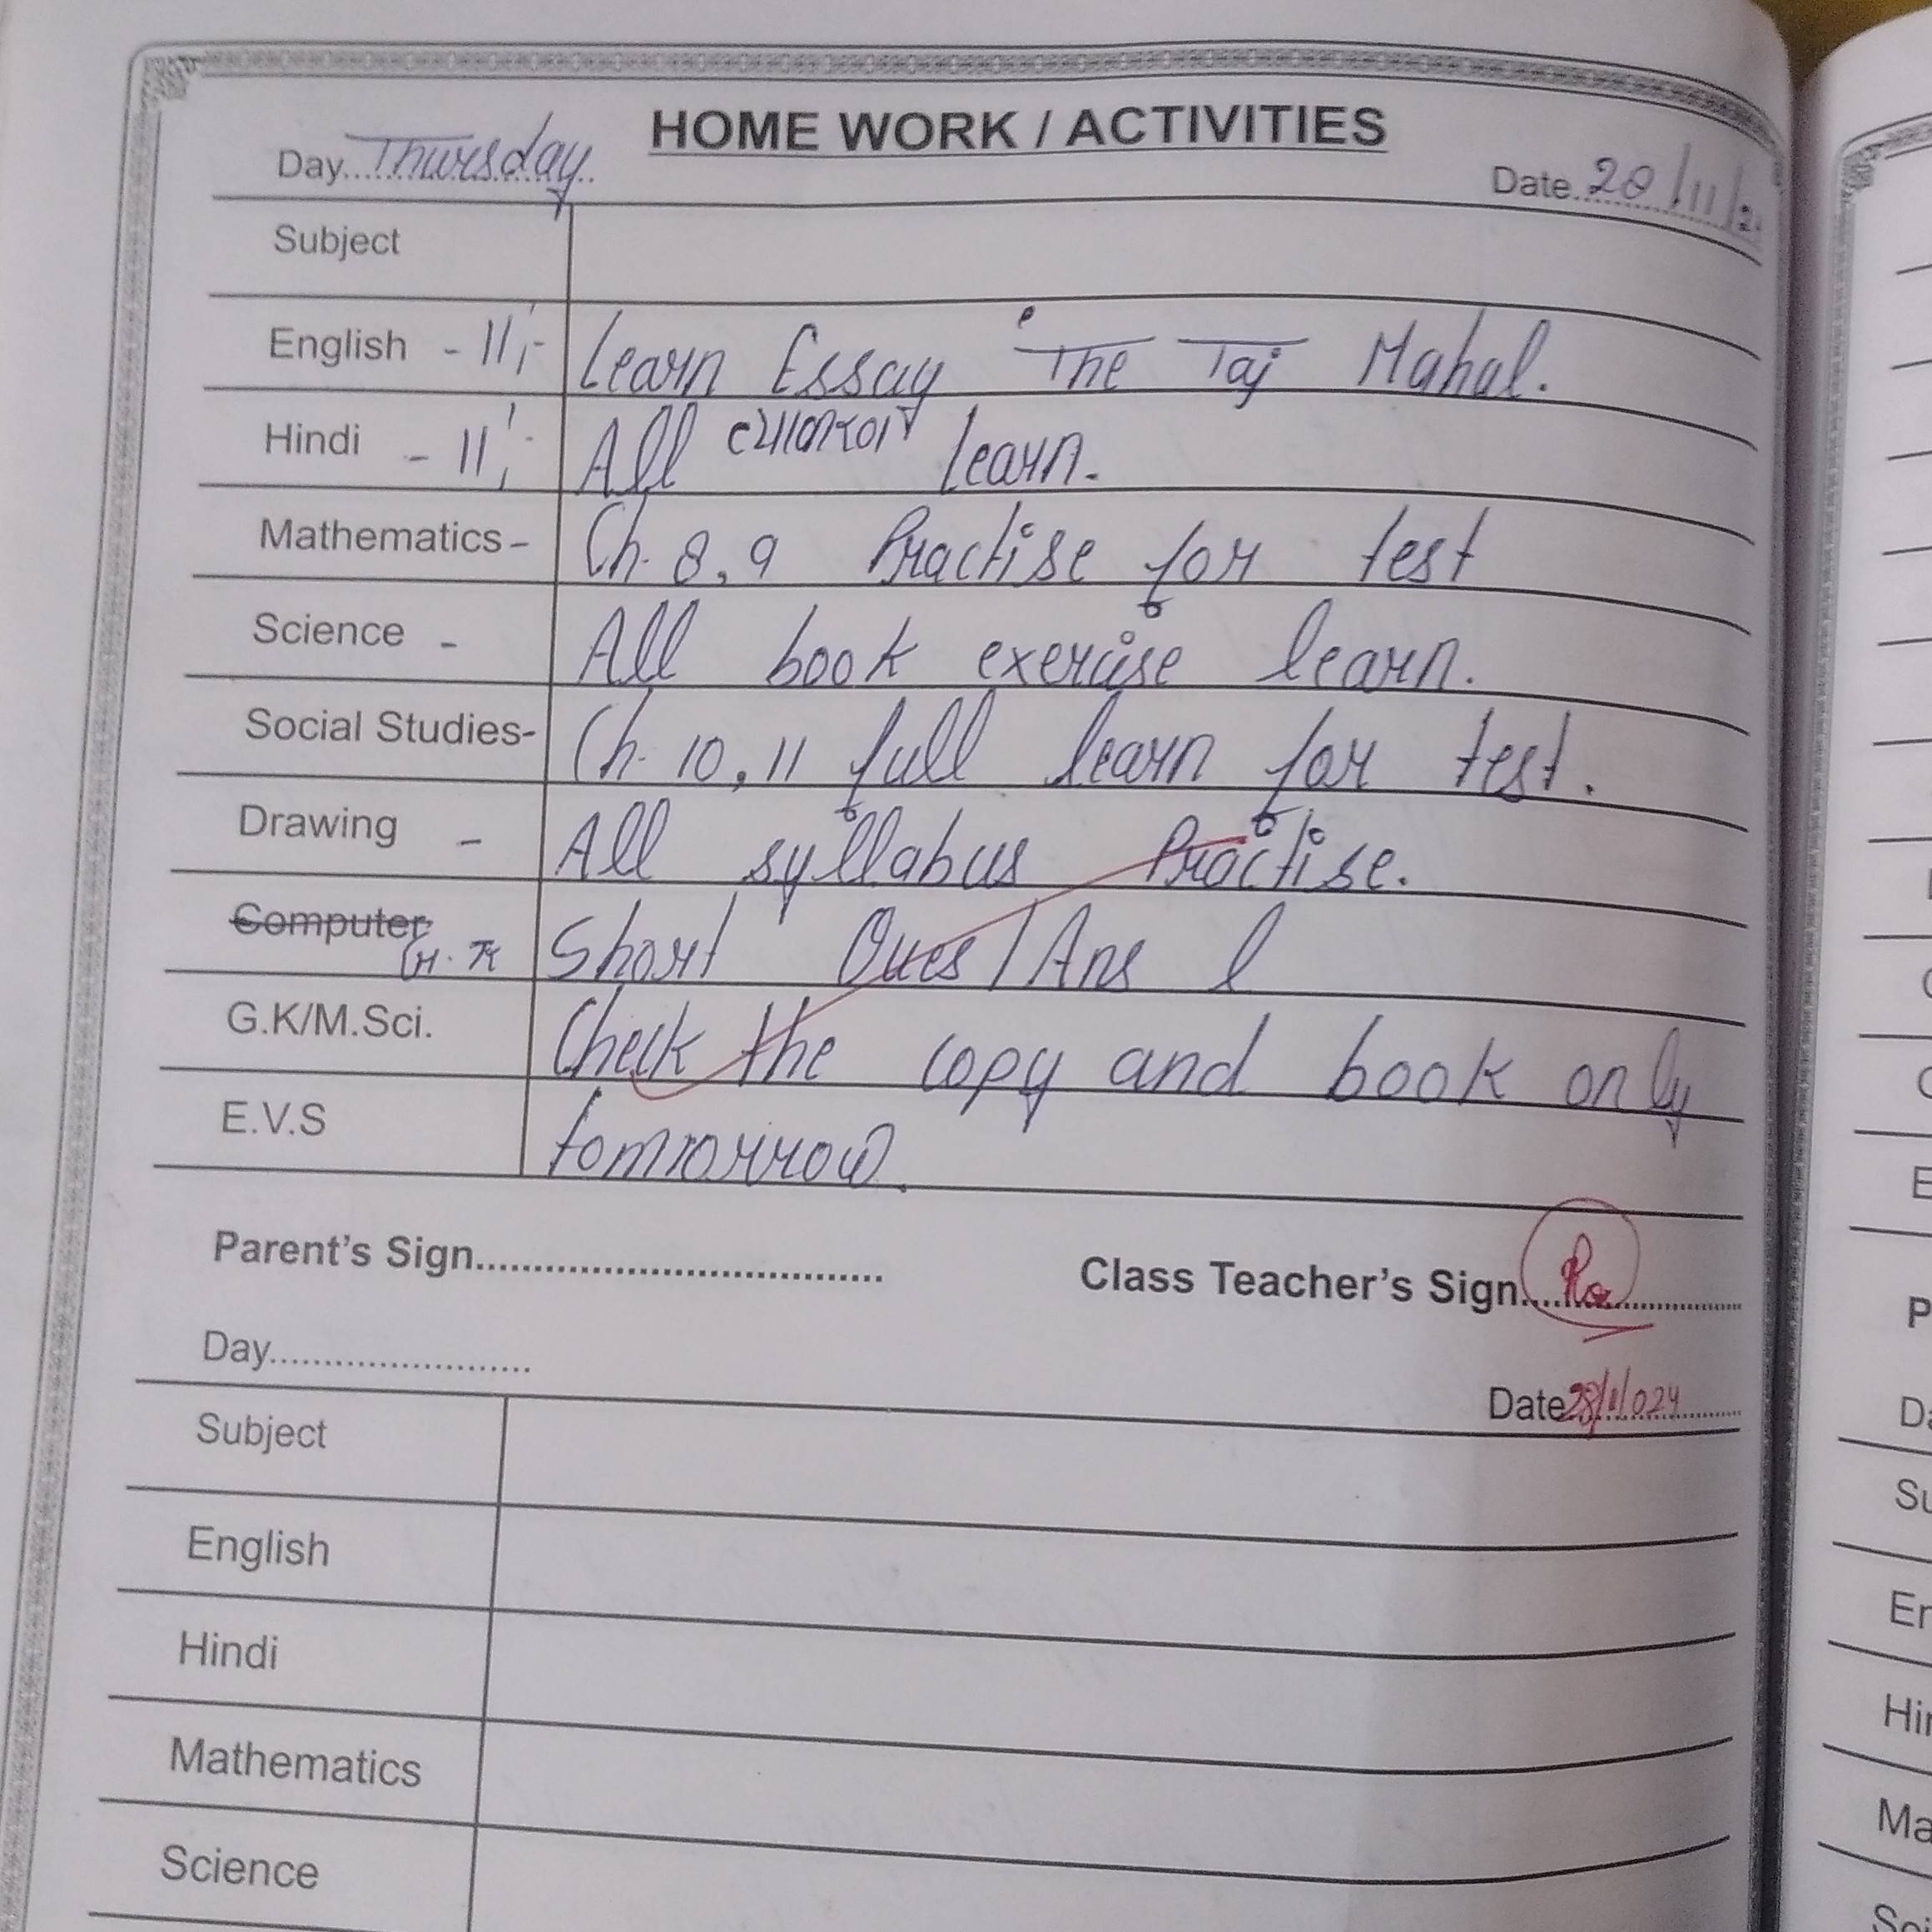 HOME WORK / ACTIVITIES
Day Thursday Date 28/11/2
Subject
English - 11,- Learn Essay The Taj Mahal.
Hindi - 11,- All व्याकरण learn.
Mathematics - Ch. 8, 9 Practise for test
Science - All book exercise learn.
Social Studies- Ch. 10, 11 full learn for test.
Drawing - All syllabus Practise.
Computer G.K Short Ques/Ans l
G.K/M.Sci. Check the copy and book only
E.V.S tomrorrow.
Parent's Sign Class Teacher's Sign
Day Date 28/11/024
Subject
English
Hindi
Mathematics
Science